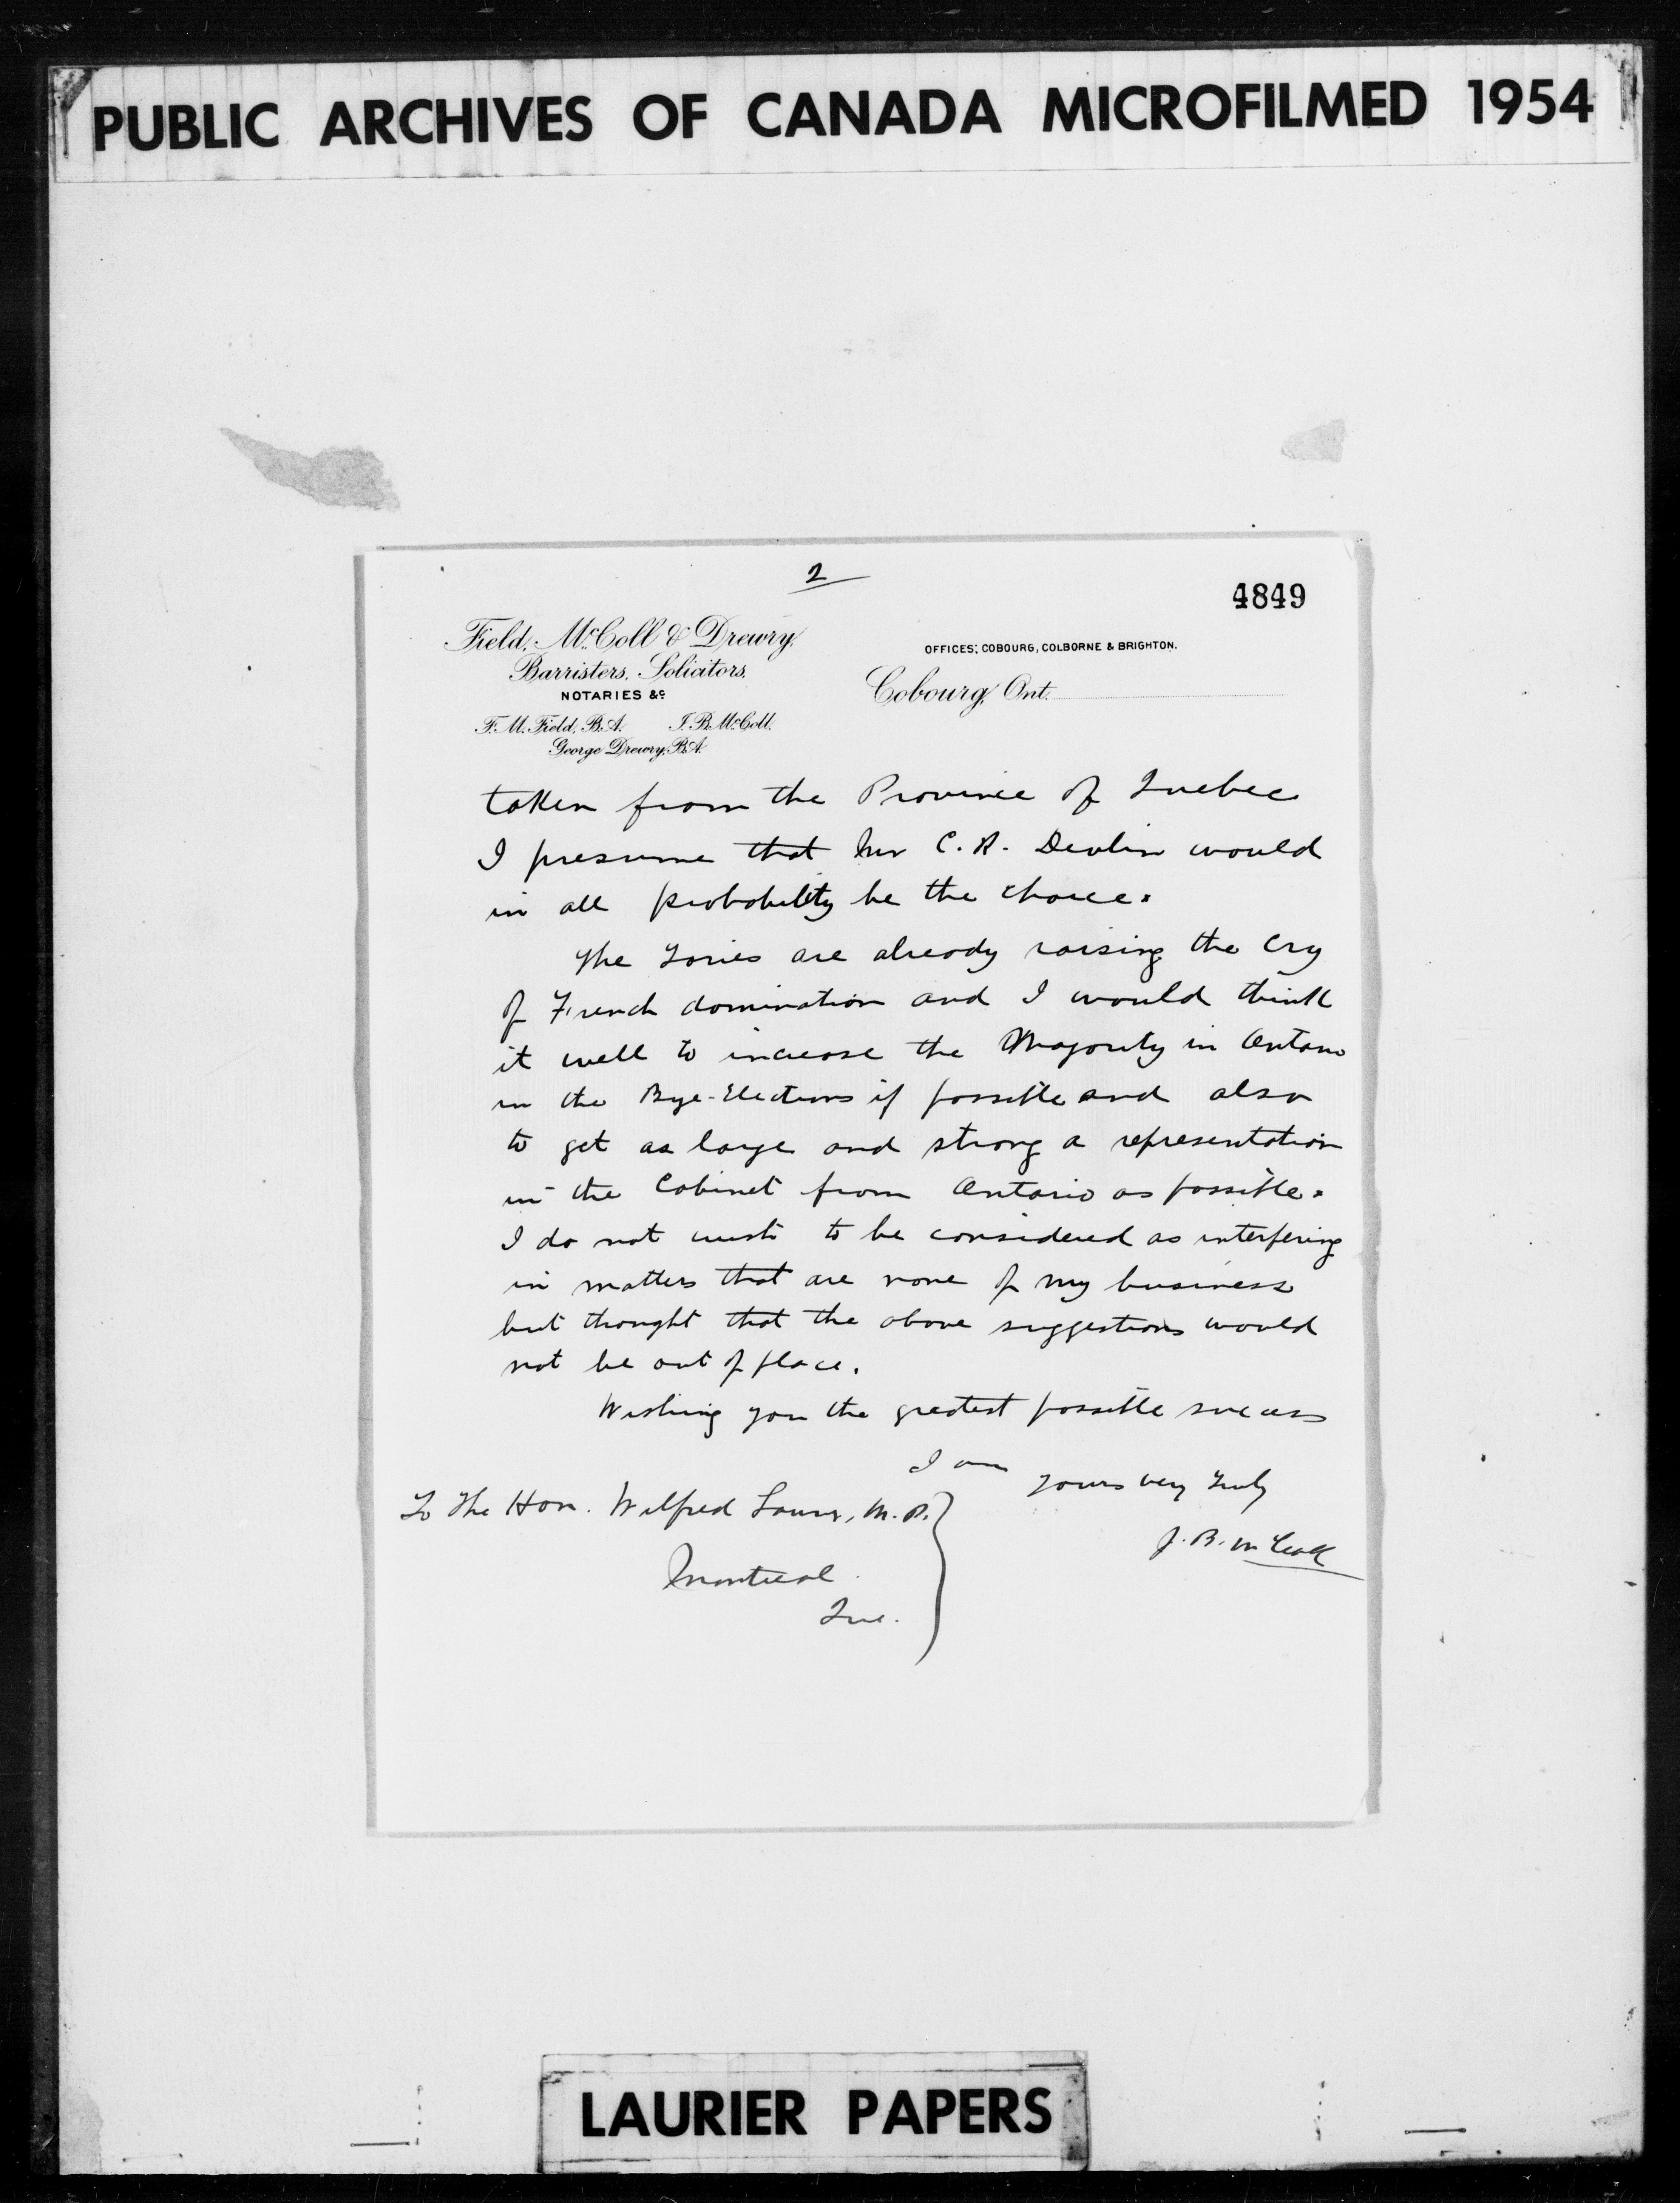 PUBLIC ARCHIVES OF CANADA MICROFILMED 1954
2
4849
Field, McColl & Drewry,
Barristers, Solicitors,
NOTARIES &c
F. M. Field, B.A. J. B. McColl.
George Drewry, B.A.
OFFICES; COBOURG, COLBORNE & BRIGHTON.
Cobourg, Ont.
taken from the Province of Quebec
I presume that Mr C. R. Devlin would
in all probability be the choice.
The Tories are already raising the cry
of French domination and I would think
it well to increase the Majority in Ontario
in the Bye-Elections if possible and also
to get as large and strong a representation
in the Cabinet from Ontario as possible.
I do not wish to be considered as interfering
in matters that are none of my business
but thought that the above suggestions would
not be out of place.
Wishing you the greatest possible success
I am
Yours very truly
J. B. McColl
To The Hon. Wilfred Laurier, M.P.
Montreal
Que.
LAURIER PAPERS